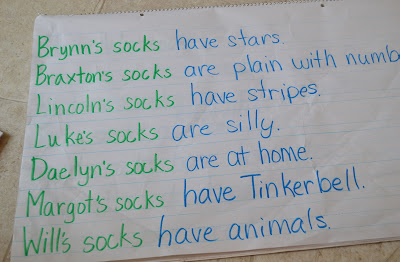 Brynn's socks have stars.
Braxton's socks are plain with
Lincoln's socks have stripes.
Luke's socks are silly.
Daelyn's socks are at home.
Margot's socks have Tinkerbell.
Will's socks have animals.